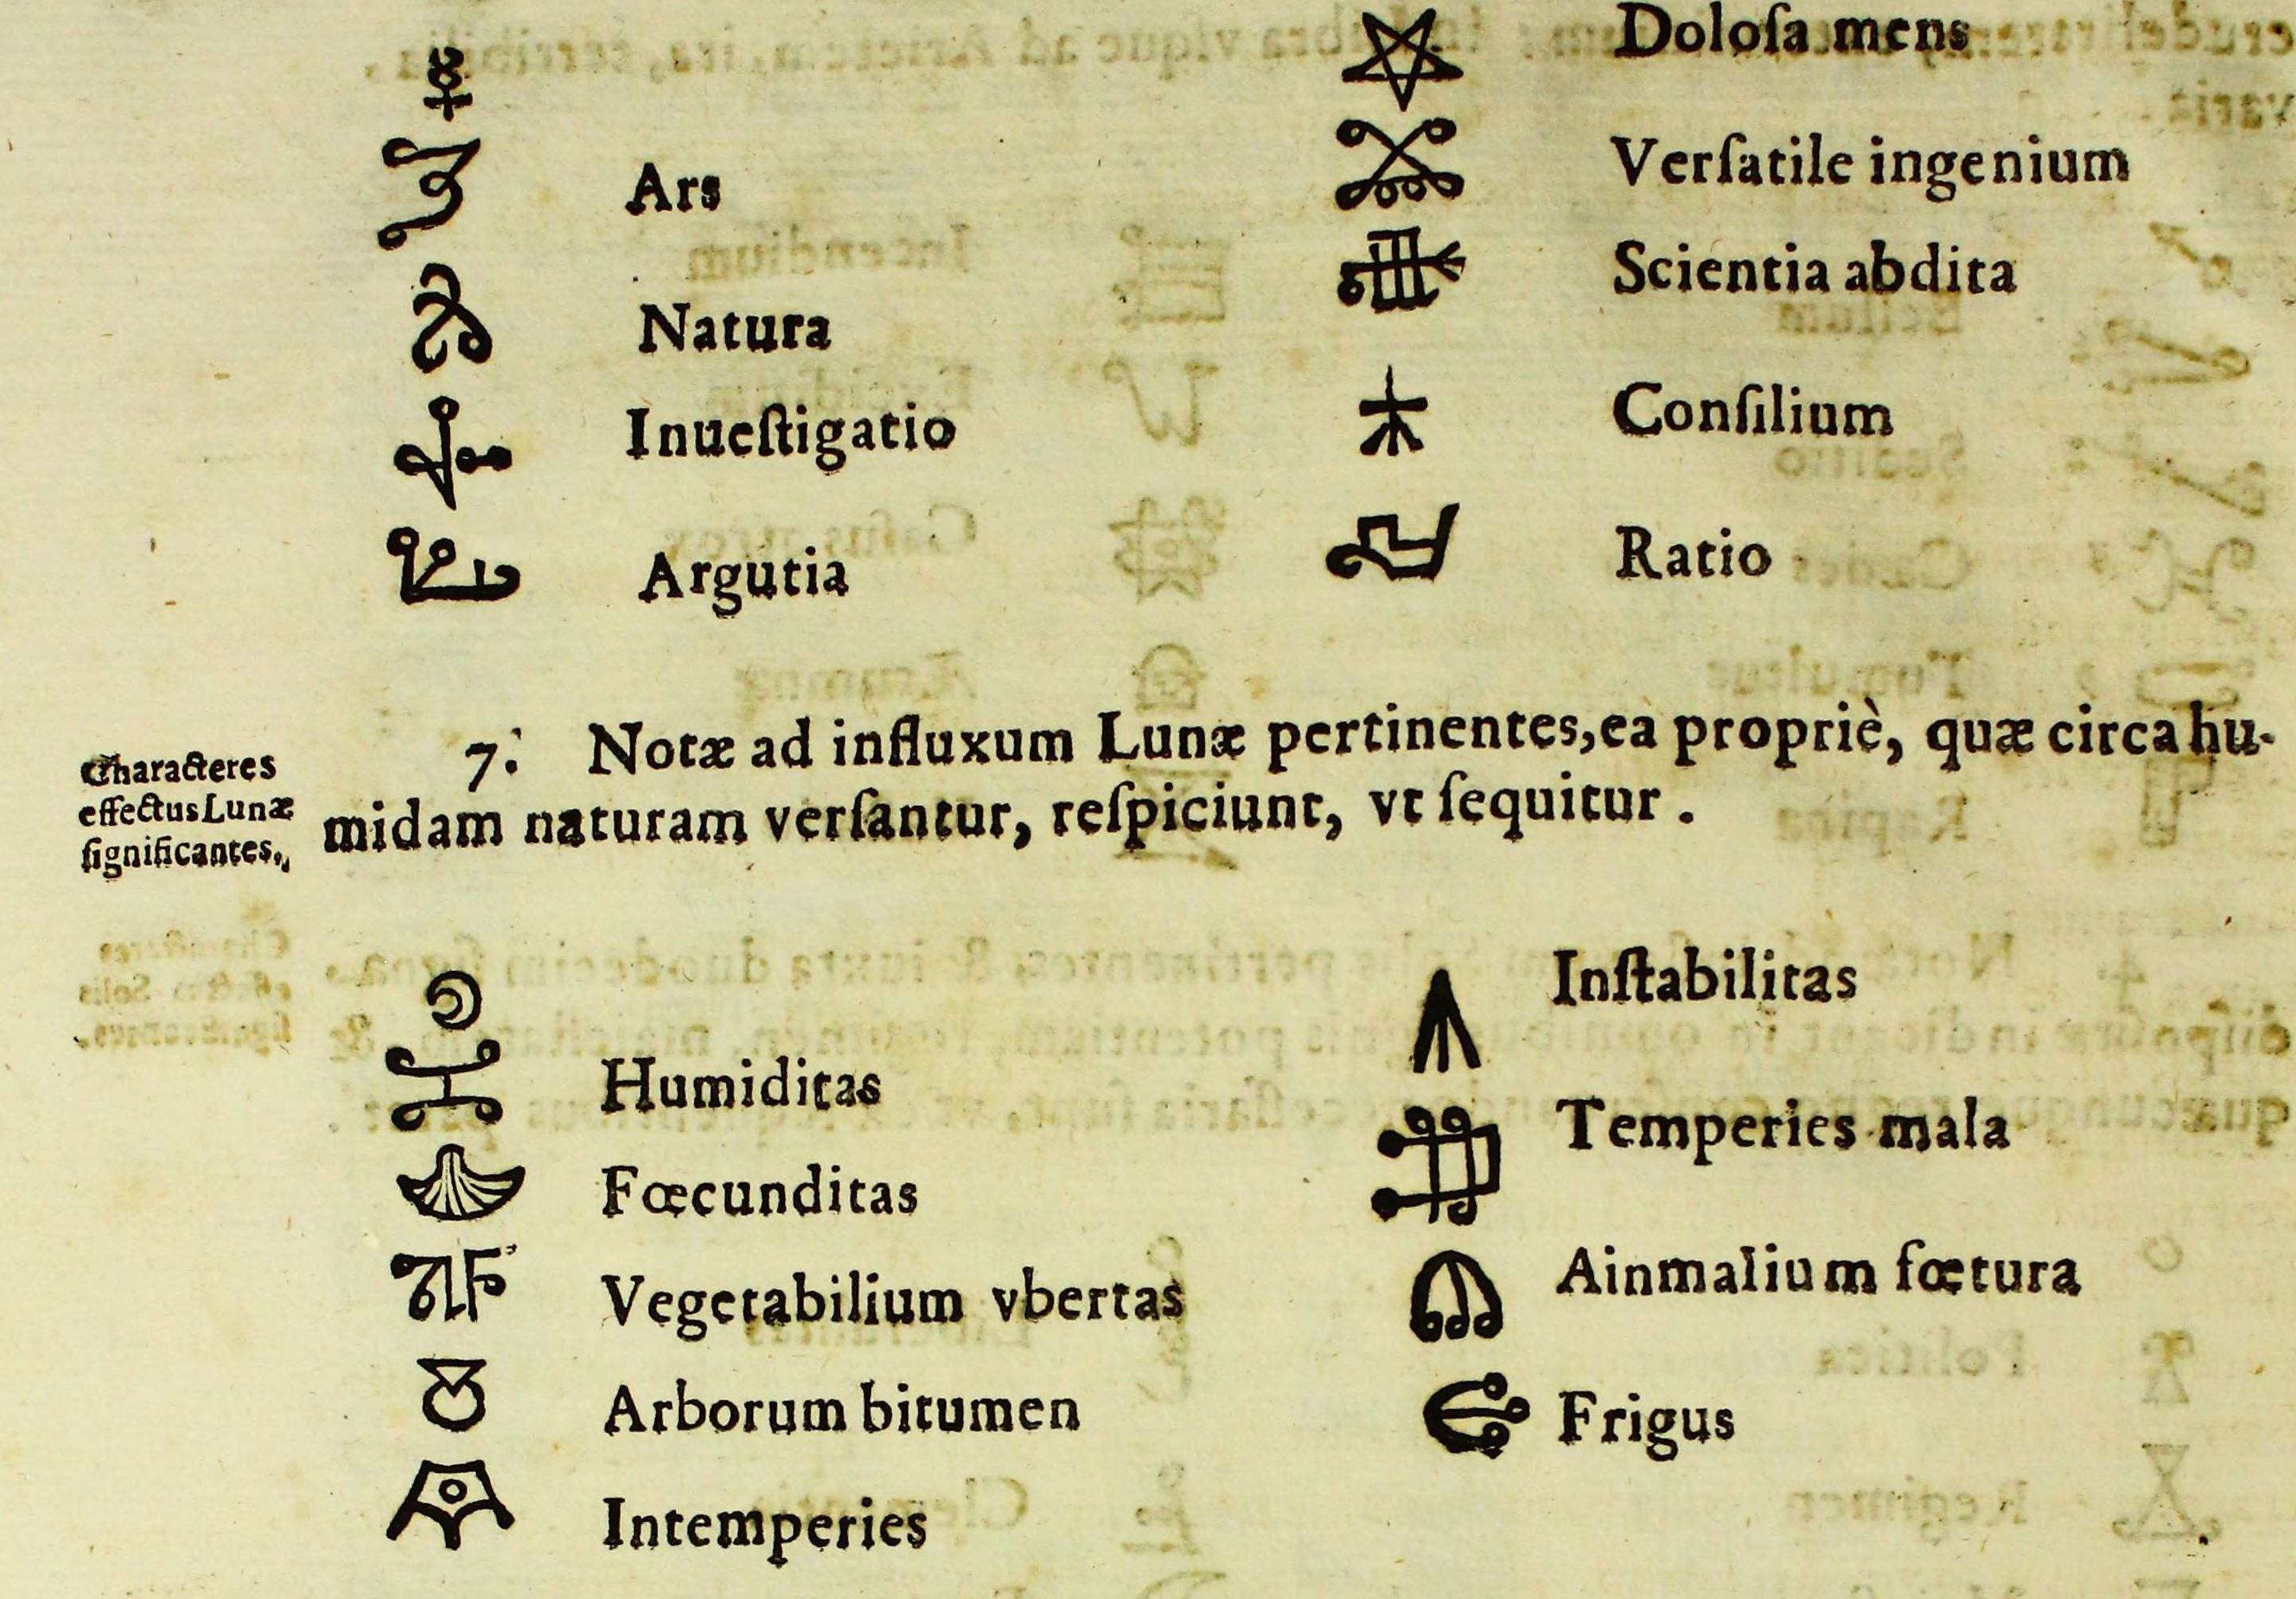 ☿
Ars
Natura
Inueſtigatio
Argutia
Doloſa mens
Verſatile ingenium
Scientia abdita
Conſilium
Ratio
Characteres
effectus Lunæ
ſignificantes.
7. Notæ ad influxum Lunæ pertinentes, ea propriè, quæ circa hu-
midam naturam verſantur, reſpiciunt, vt ſequitur .
Humiditas
Fœcunditas
Vegetabilium vbertas
Arborum bitumen
Intemperies
Inſtabilitas
Temperies mala
Ainmalium fœtura
Frigus